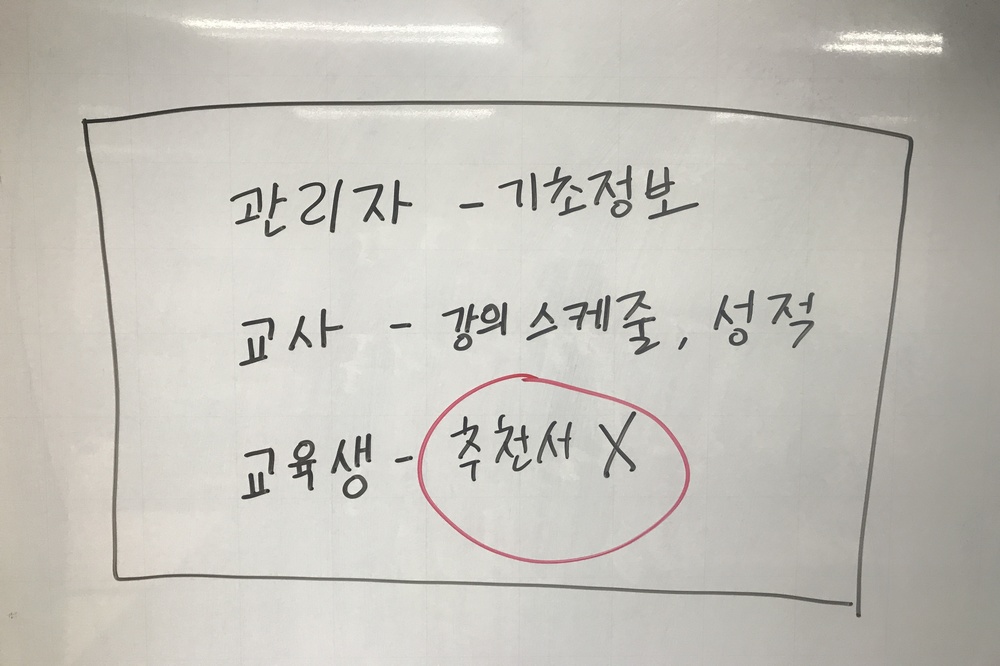 관리자 - 기초정보
교사 - 강의 스케줄, 성적
교육생 - 추천서 X